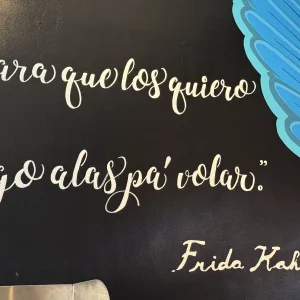 ara que los quiero
go alas pa' volar."
Frida Kah